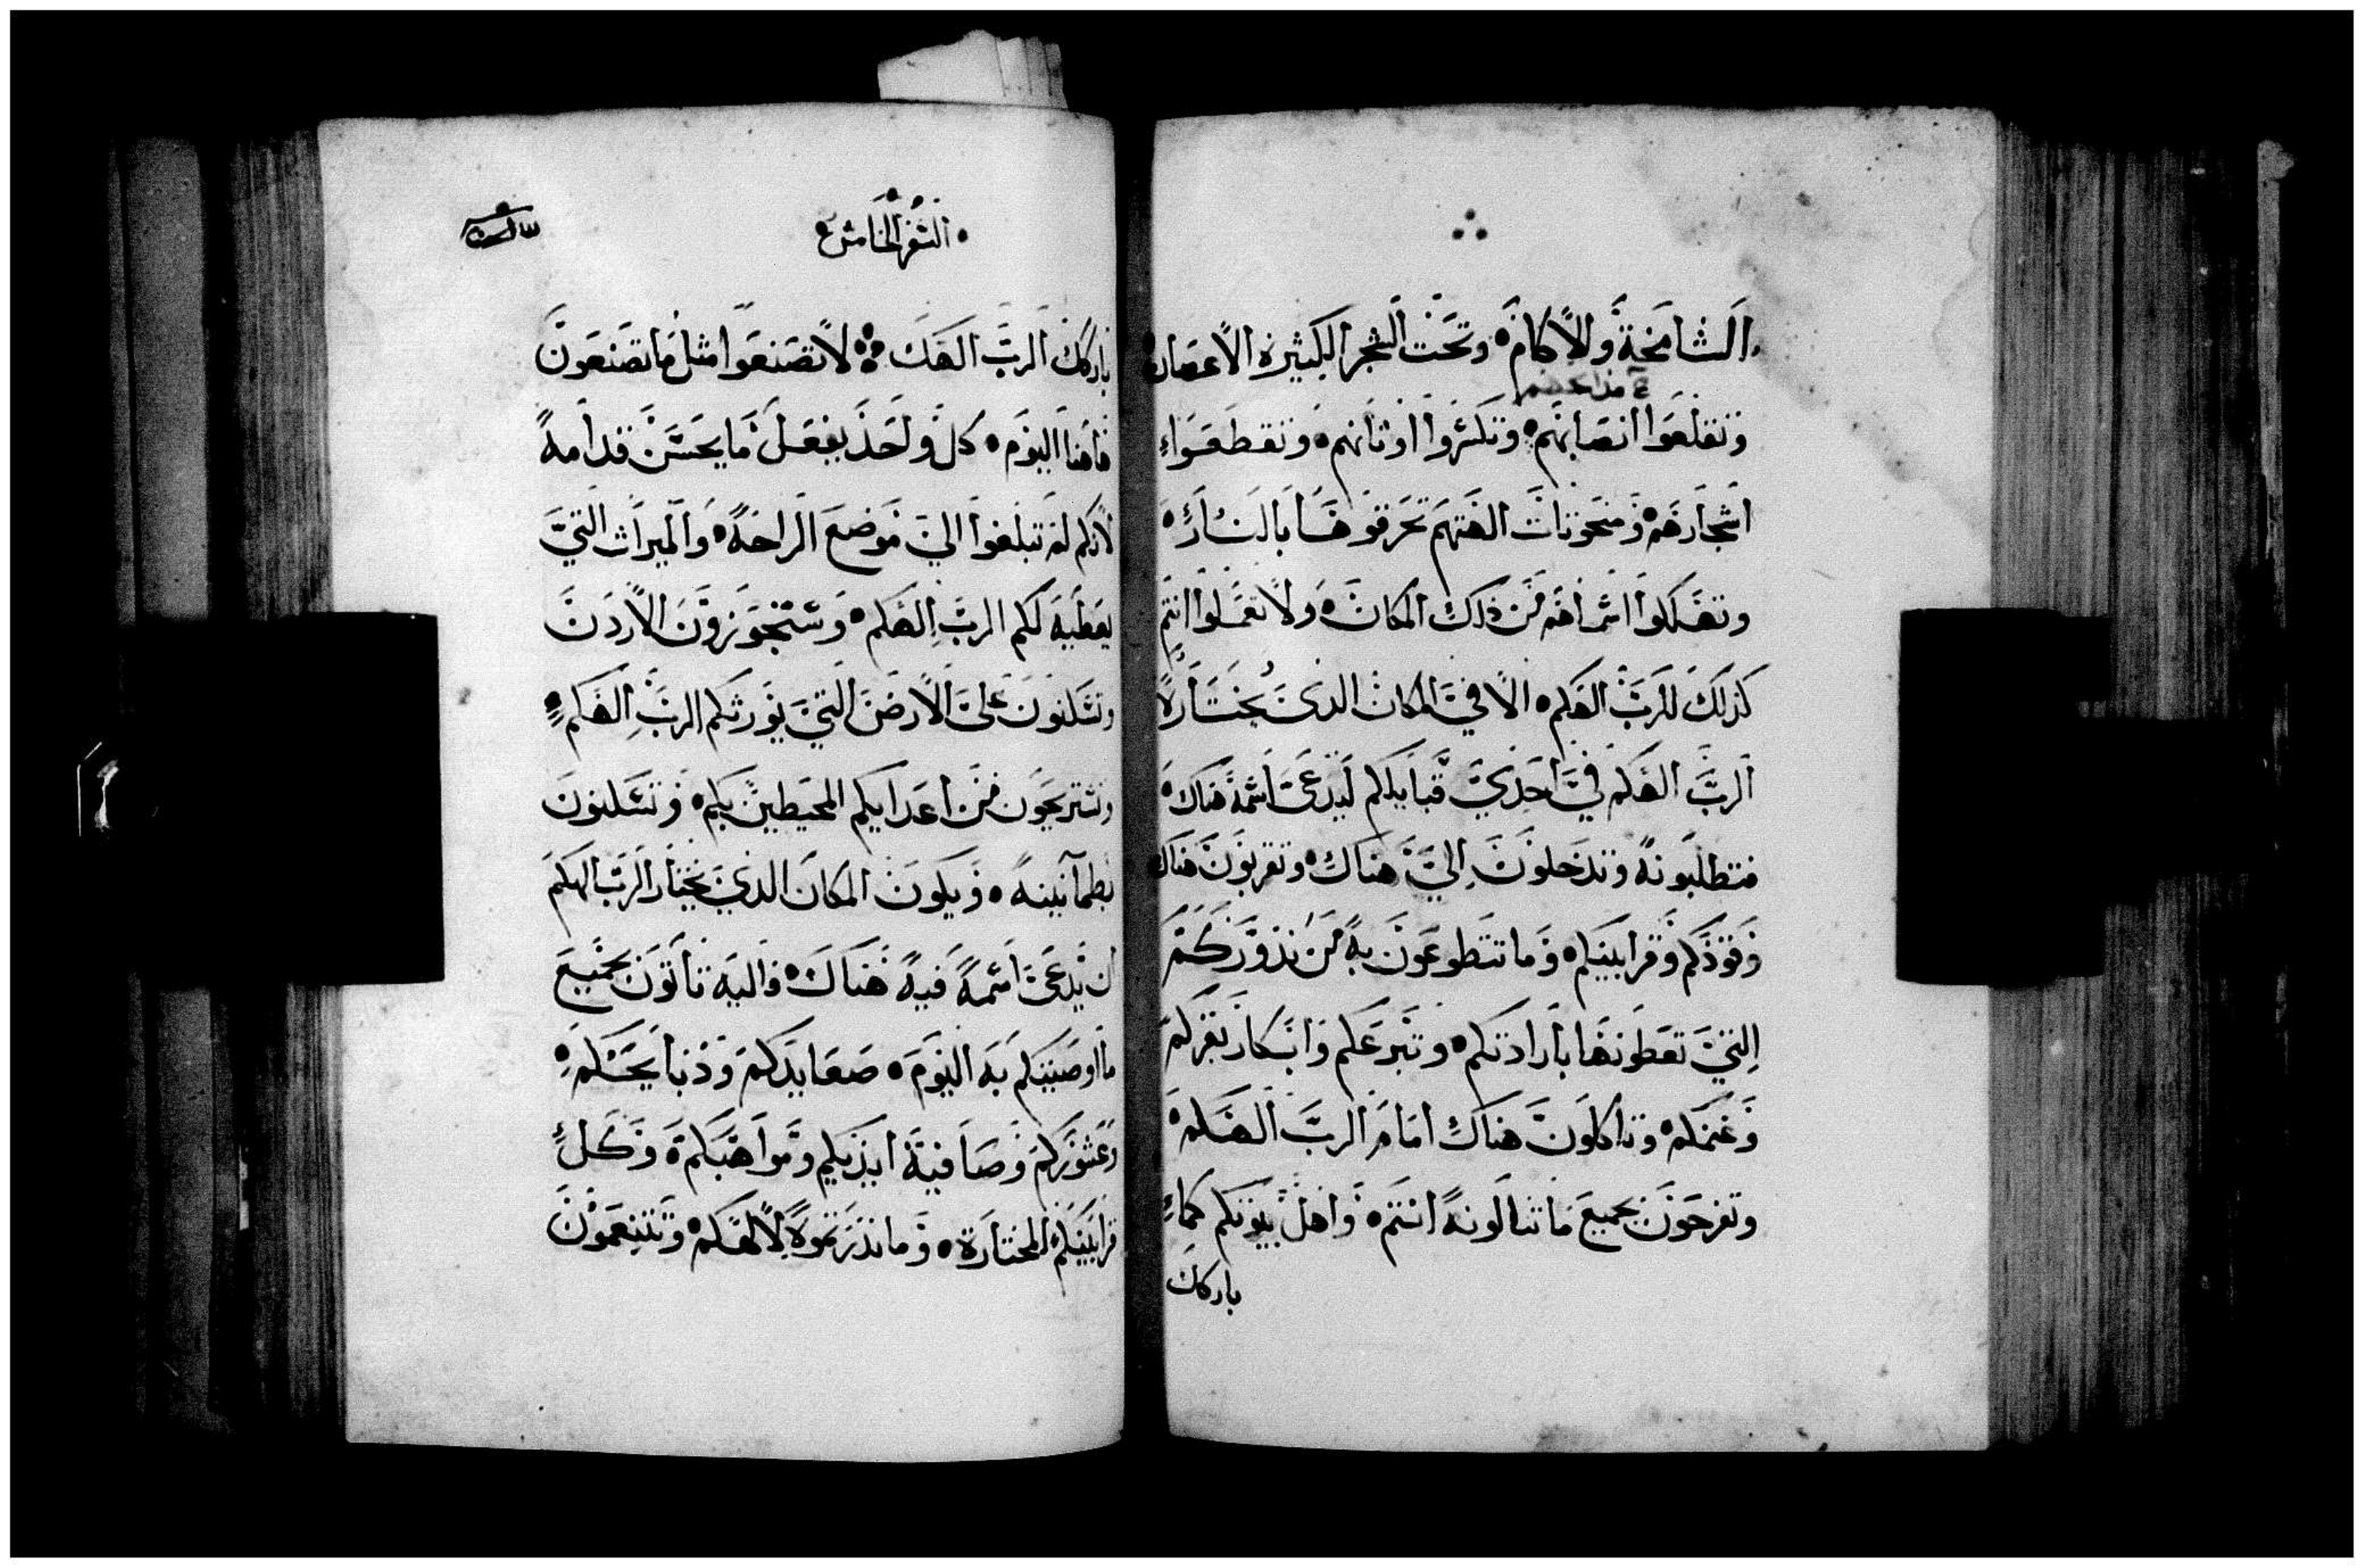 الشامخة والاكام وتحت الشجر الكثيره الاغصان
وتقلعوا انصابهم وتكسروا اوثانهم وتقطعوا
اشجارهم ومنحوتات الهتهم تحرقوها بالنار
وتهلكوا اسماهم من ذلك المكان ولا تعملوا انتم
كذلك للرب الهكم الا في المكان الذي يختاره
الرب الهكم في احدي قبايلكم ليدعي اسمه هناك
فتطلبونه وتدخلون الي هناك وتقربون هناك
وقودكم وقرابينكم وما تتطوعون به من نذوركم
التي تعطونها بارادتكم وتبرعكم وابكار بقركم
وغنمكم وتاكلون هناك امام الرب الهكم
وتفرحون بجميع ما تنالونه انتم واهل بيوتكم كما
باركك
السفر الخامس
باركك الرب الهك لا تصنعوا مثل ما تصنعون
هاهنا اليوم كل واحد يفعل ما يحسن قدامه
لانكم لم تبلغوا الي موضع الراحه والميراث التي
يعطيه لكم الرب الهكم وستجوزون الاردن
وتسكنون علي الارض التي يورثكم الرب الهكم
وتستريحون من اعدايكم المحيطين بكم وتسكنون
بطمانينه ويكون المكان الذي يختار الرب الهكم
ان يدعي اسمه فيه هناك واليه تاتون بجميع
ما اوصيكم به اليوم صعايدكم وذبايحكم
وعشوركم وصافية ايديكم ومواهبكم وكل
قرابينكم المختارة وما نذرتموه لالهكم وتتنعمون